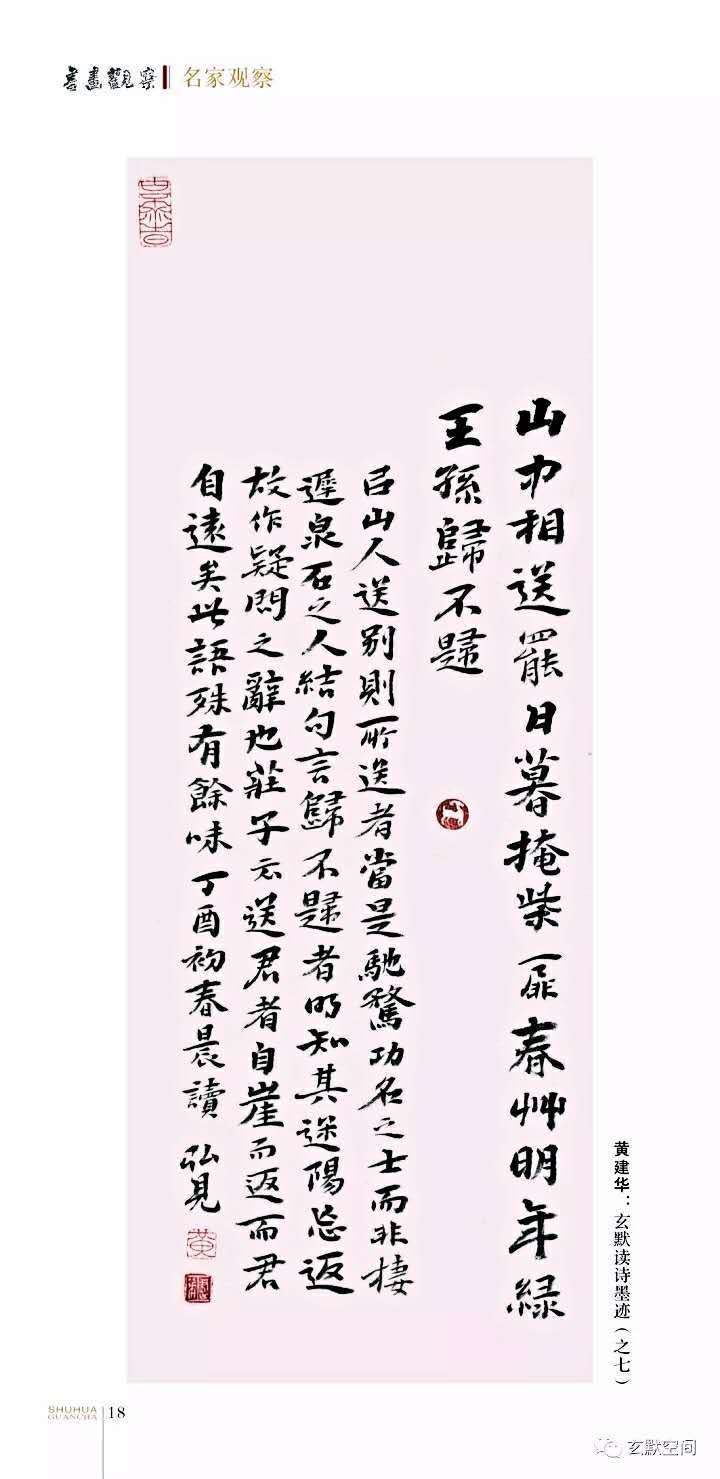 書畫觀察 名家观察
山中相送罷日暮掩柴扉春艸明年緑
王孫歸不歸
㠯山人送别則所送者當是馳騖功名之士而非棲
遲泉石之人結句言歸不歸者明知其迷陽忘返
故作疑問之辭也莊子云送君者自崖而返而君
自遠矣此語殊有餘味丁酉初春晨讀 弘見
黄
黄建华：玄默读诗墨迹（之七）
SHUHUA
GUANCHA
18
玄默空间